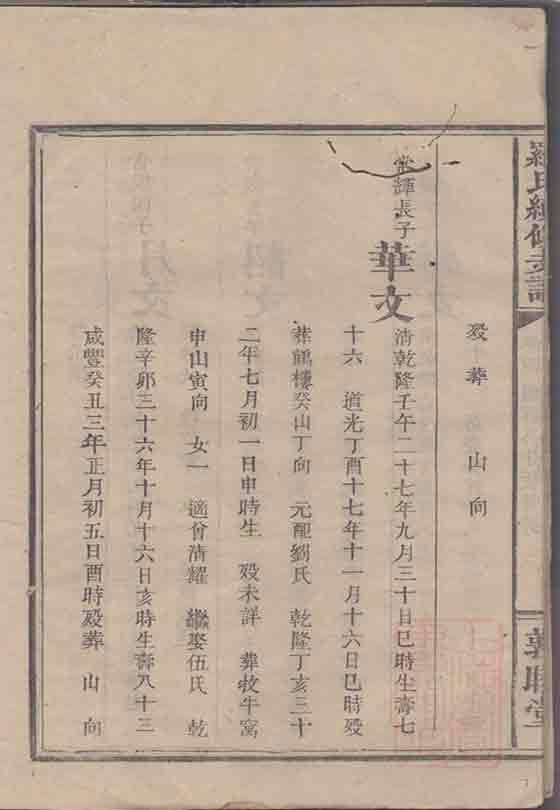 羅氏續修支譜
敦睦堂
歿葬　山　向
常輝長子　華文　清乾隆壬午二十七年九月三十日巳時生壽七
十六　道光丁酉十七年十一月十六日巳時歿
葬鶴樓癸山丁向　元配劉氏　乾隆丁亥三十
二年七月初一日申時生　歿未詳　葬牧牛窩
申山寅向　女一　適曾清耀　繼娶伍氏　乾
隆辛卯三十六年十月十六日亥時生壽八十三
咸豐癸丑三年正月初五日酉時歿葬　山　向